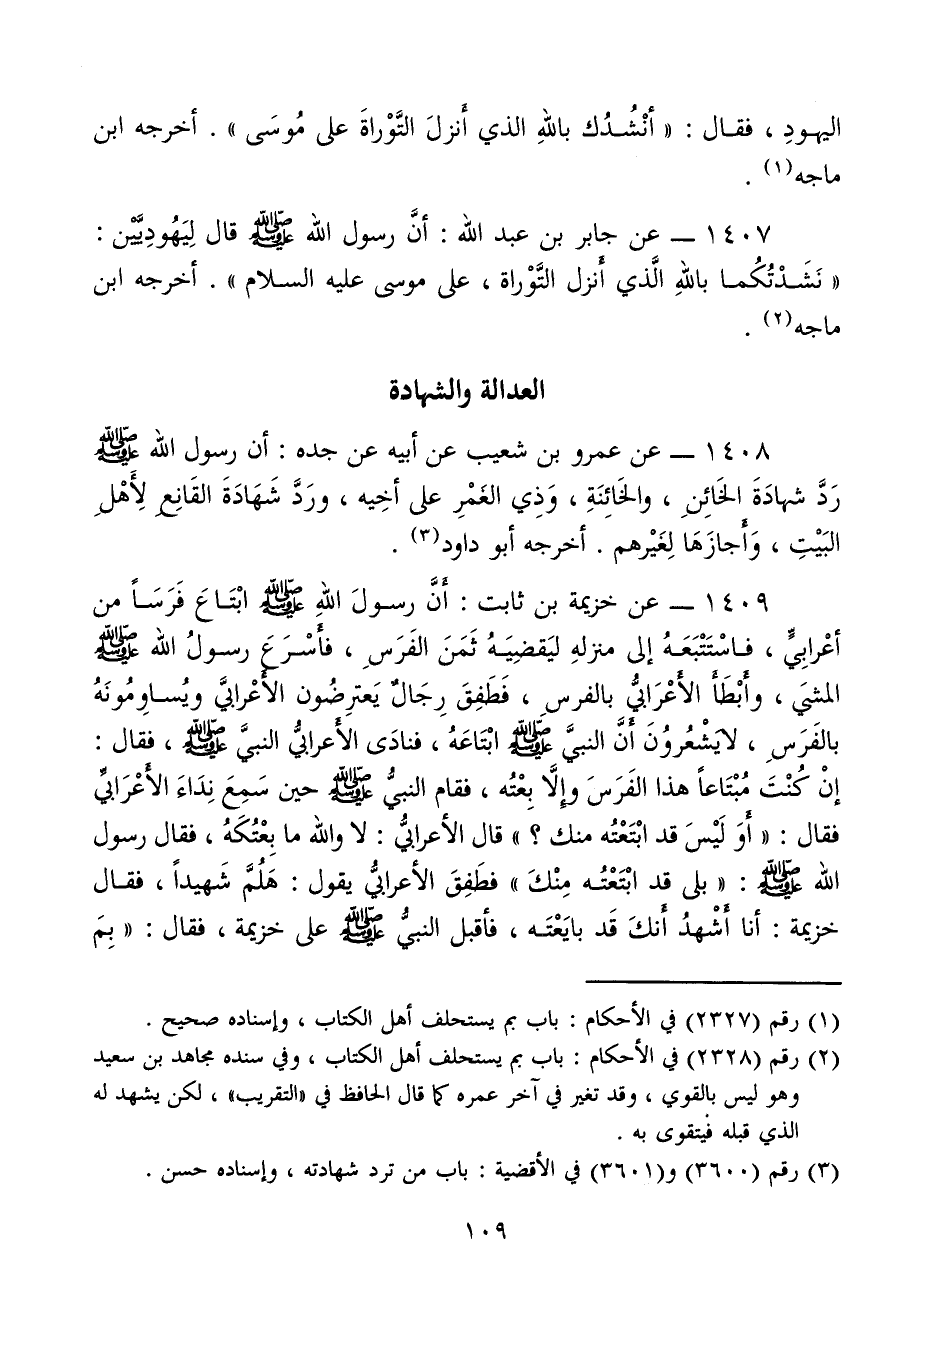 اليهودِ ، فقـال : « أَنْشُـدُك باللهِ الذي أَنزلَ التَّوْراةَ على مُوسَى » . أخرجه ابن
ماجه(١) .
١٤٠٧ ــ عن جابر بن عبد الله : أنَّ رسول الله ﷺ قال لِيَهُودِيَّيْن :
« نَشَـدْتُكُمـا باللهِ الَّذي أَنزل التَّوْراة ، على موسى عليه السـلام » . أخرجه ابن
ماجه(٢) .
العدالة والشهادة
١٤٠٨ ــ عن عمرو بن شعيب عن أبيه عن جده : أن رسول الله ﷺ
رَدَّ شهادَةَ الخَائنِ ، والخَائِنَةِ ، وَذِي الغَمْرِ على أخيه ، ورَدَّ شَهَادَةَ القَانِعِ لِأَهْلِ
البَيْتِ ، وَأَجازَهَا لِغَيْرهم . أخرجه أبو داود(٣) .
١٤٠٩ ــ عن خزيمة بن ثابت : أَنَّ رسـولَ اللهِ ﷺ ابْتَـاعَ فَرَسَـاً من
أعْرابيٍّ ، فـاسْتَتْبَعَـهُ إلى منزلهِ ليَقضيَـهُ ثَمَنَ الفَرَسِ ، فأَسْـرَعَ رسـولُ الله ﷺ
المشيَ ، وأَبْطَأَ الأَعْرَابيُّ بالفرسِ ، فَطَفِقَ رِجَالٌ يَعترِضُون الأَعْرابيَّ ويُسـاوِمُونَهُ
بالفَرَسِ ، لايَشْعُروُنَ أَنَّ النبيَّ ﷺ ابْتَاعَهُ ، فنادَى الأعرابيُّ النبيَّ ﷺ ، فقال :
إنْ كُنْتَ مُبْتَاعاً هذا الفَرَسَ وإلَّا بِعْتُه ، فقام النبيُّ ﷺ حين سَمِعَ نِدَاءَ الأَعْرَابيِّ
فقال : « أَوَ لَيْسَ قد ابْتَعْتُه منك ؟ » قال الأعرابيُّ : لا والله ما بِعْتُكَهُ ، فقال رسول
الله ﷺ : « بلى قد ابْتَعْتُـه مِنْكَ » فطَفِقَ الأعرابيُّ يقول : هَلُمَّ شَهيداً ، فقـال
خزيمة : أنا أَشْهدُ أَنكَ قَد بايَعْتَـه ، فأقبل النبيُّ ﷺ على خزيمة ، فقال : « بِمَ
(١) رقم (٢٣٢٧) في الأحكام : باب بم يستحلف أهل الكتاب ، وإسناده صحيح .
(٢) رقم (٢٣٢٨) في الأحكام : باب بم يستحلف أهل الكتاب ، وفي سنده مجاهد بن سعيد
وهو ليس بالقوي ، وقد تغير في آخر عمره كما قال الحافظ في «التقريب» ، لكن يشهد له
الذي قبله فيتقوى به .
(٣) رقم (٣٦٠٠) و(٣٦٠١) في الأقضية : باب من ترد شهادته ، وإسناده حسن .
١٠٩